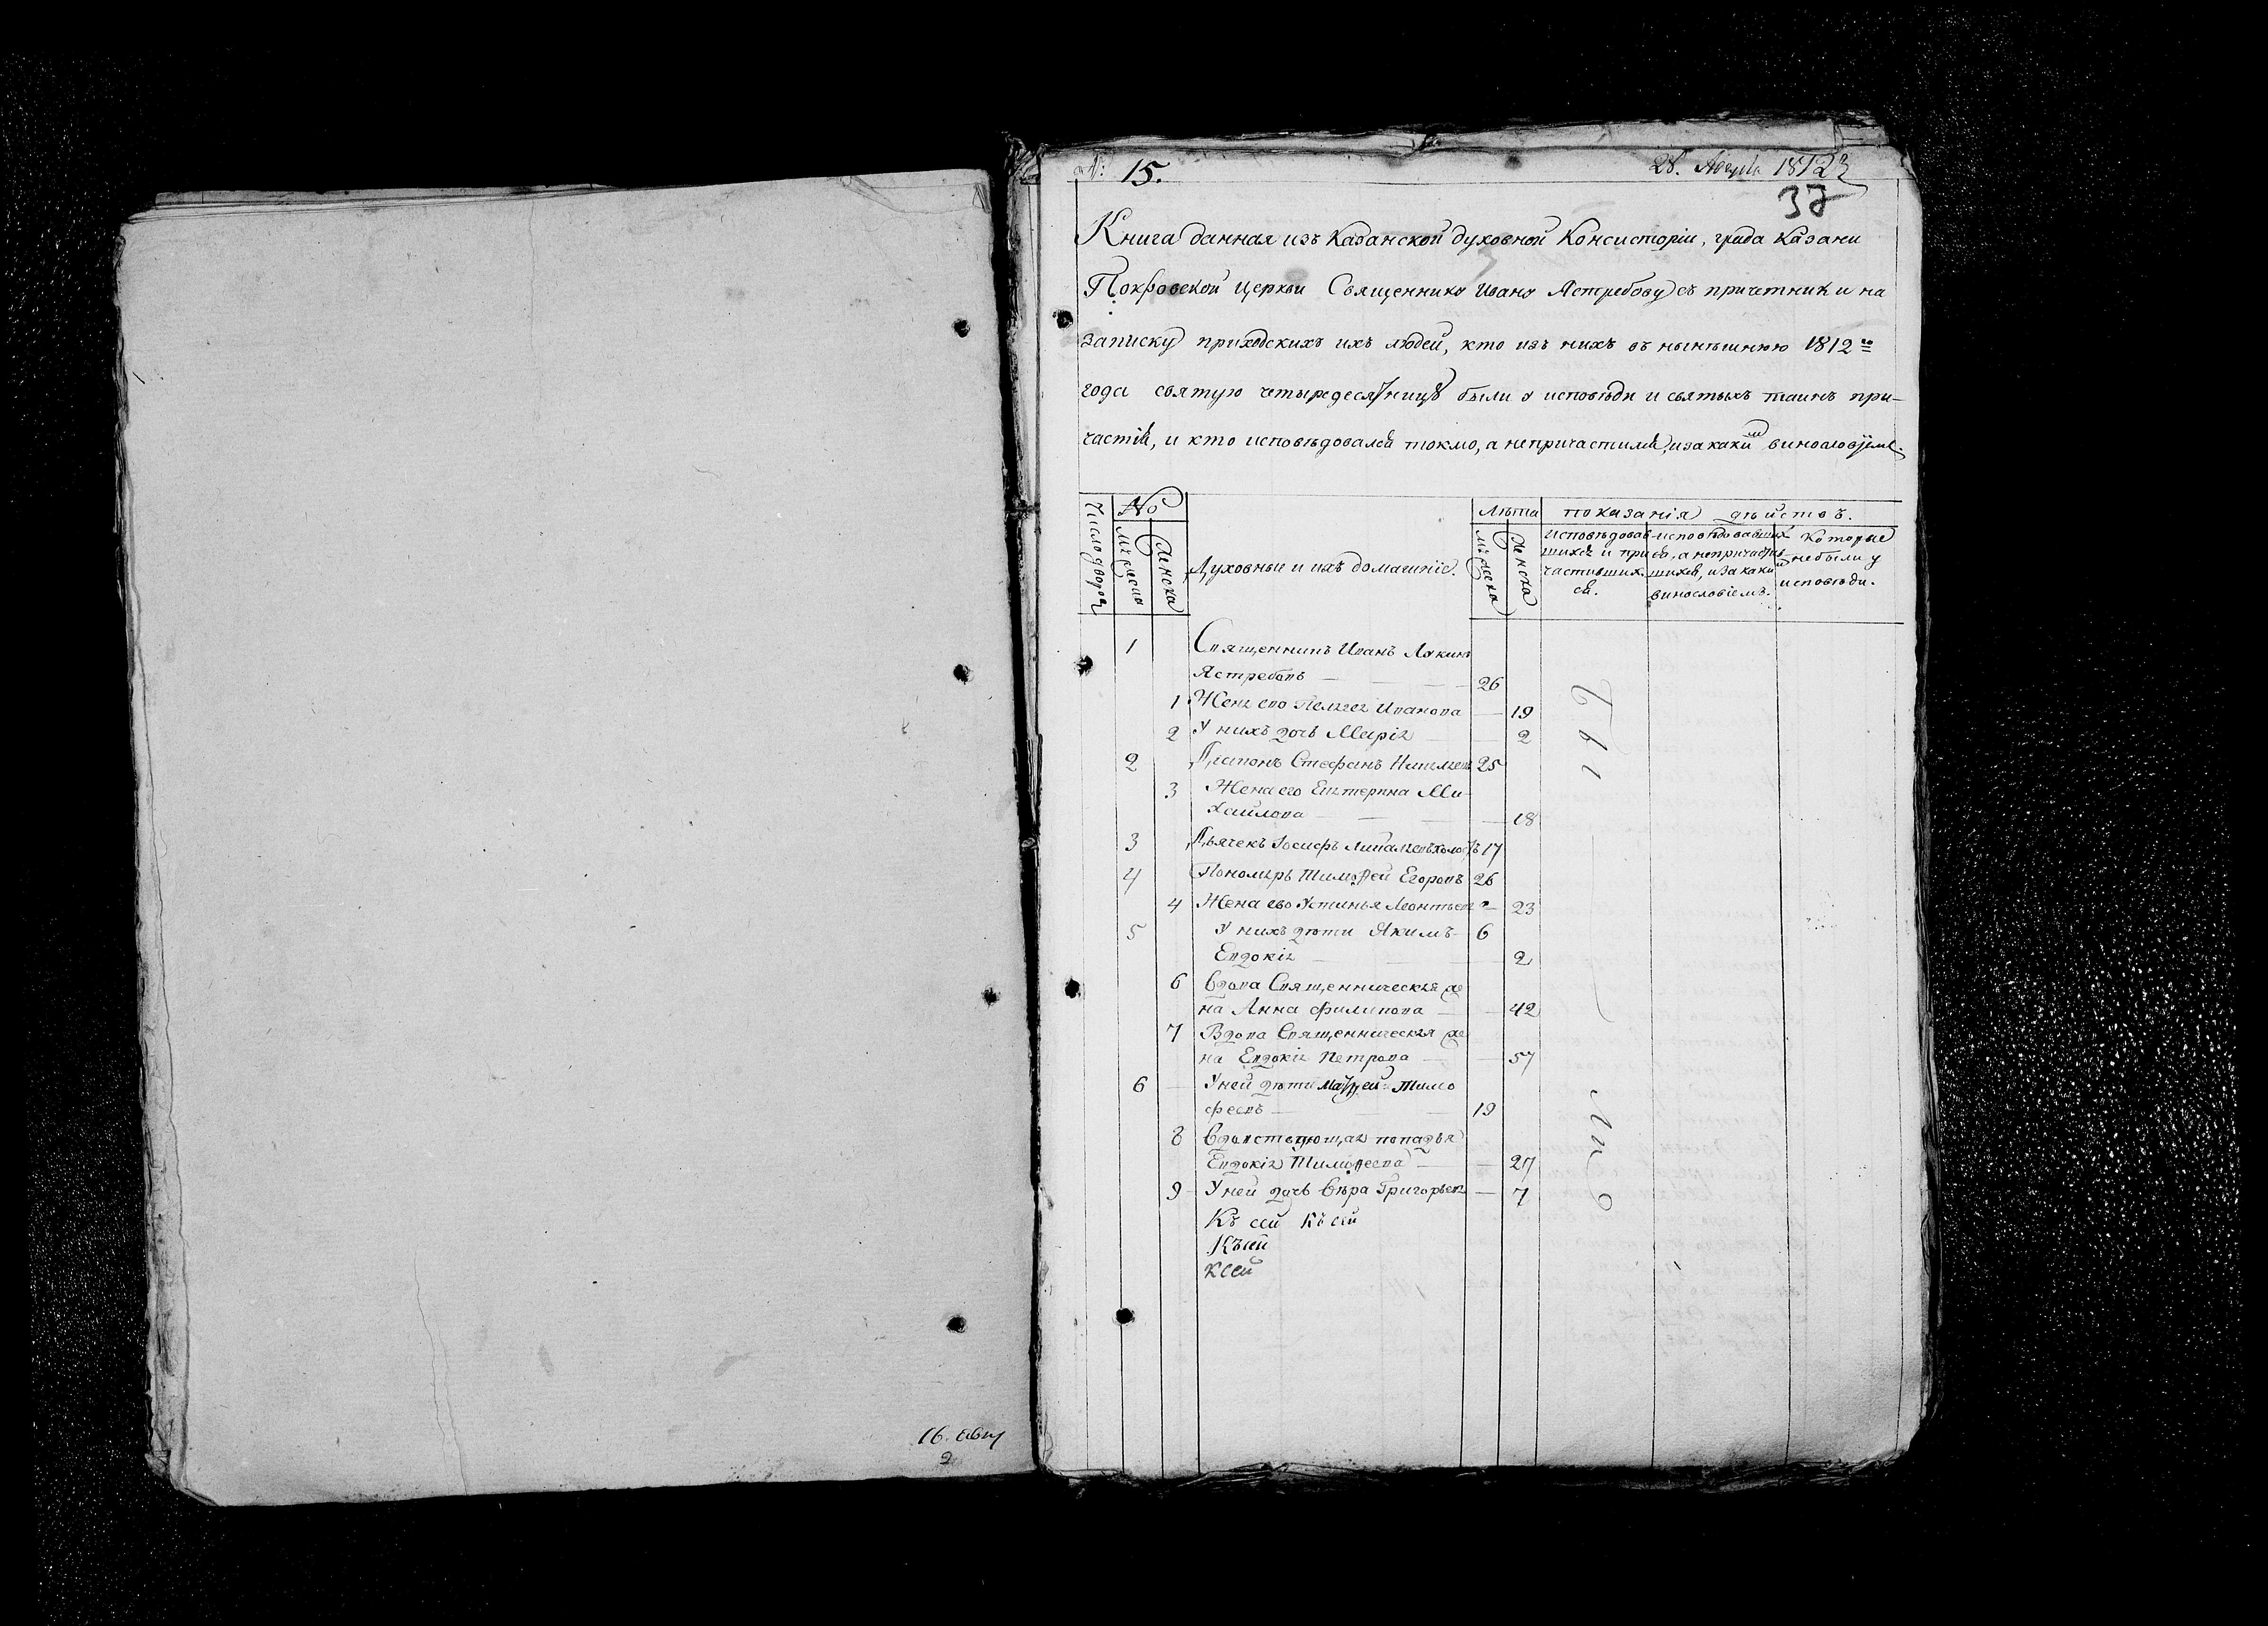 16. авгу
2
№: 15.
28. Августа 1812
37
Книга данная изъ Казанской духовной Консисторіи, града Казани
Покровской церкви Священнику Ивану Ястребову съ причетники на
записку приходскихъ ихъ людей, кто изъ нихъ въ нынѣшнюю 1812го
года святую четыредесятницу были у исповѣди и святыхъ таинъ при-
частій, и кто исповѣдовался токмо, а непричастился, и за какимъ винословіемъ.
Число дворовъ
№
Мужеска
Женска
Духовныи и ихъ домашніе.
Лѣта
Мужеска
Женска
показанія дѣйствъ.
исповѣдовав-
шихся и при-
частивших-
ся.
исповѣдовавших
ся, а непричастив-
шихся, и за каким
винословіемъ.
Которые
небыли у
исповѣди.
1 Священникъ Иванъ
Ястребовъ — 26
1 Жена его Иванова — 19
2 У нихъ дочь Марія — 2
2 Діаконъ Стефанъ 25
3 Жена его Екатерина Ми-
хайлова — 18
3 Дьячекъ Іосифъ холостъ 17
4 Пономарь Тимоѳей Егоровъ 26
4 Жена ево Устинья Леонтьева — 23
5 У нихъ дѣти Якимъ 6
Евдокія — 2
6 Вдова Священническая же
на Анна Филипова — 42
7 Вдова Священническая же
на Евдокія Петрова — 57
6 У ней дѣти Матѳей Тимо
феевъ — 19
8 Вдовствующая попадья
Евдокія Тимоѳеева — 27
9 У ней дочь Вѣра Григорьева — 7
Къ сей Къ сей
Къ сей
К сей
Были